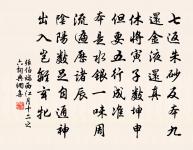 七返朱砂反本九
還金液還真
休將寅子數坤申
但要五行成準
本是水銀一味周
流遍歷諸辰
陰陽數足自通神
出入豈離玄牝
張伯端西江月十二之
六韵典網書